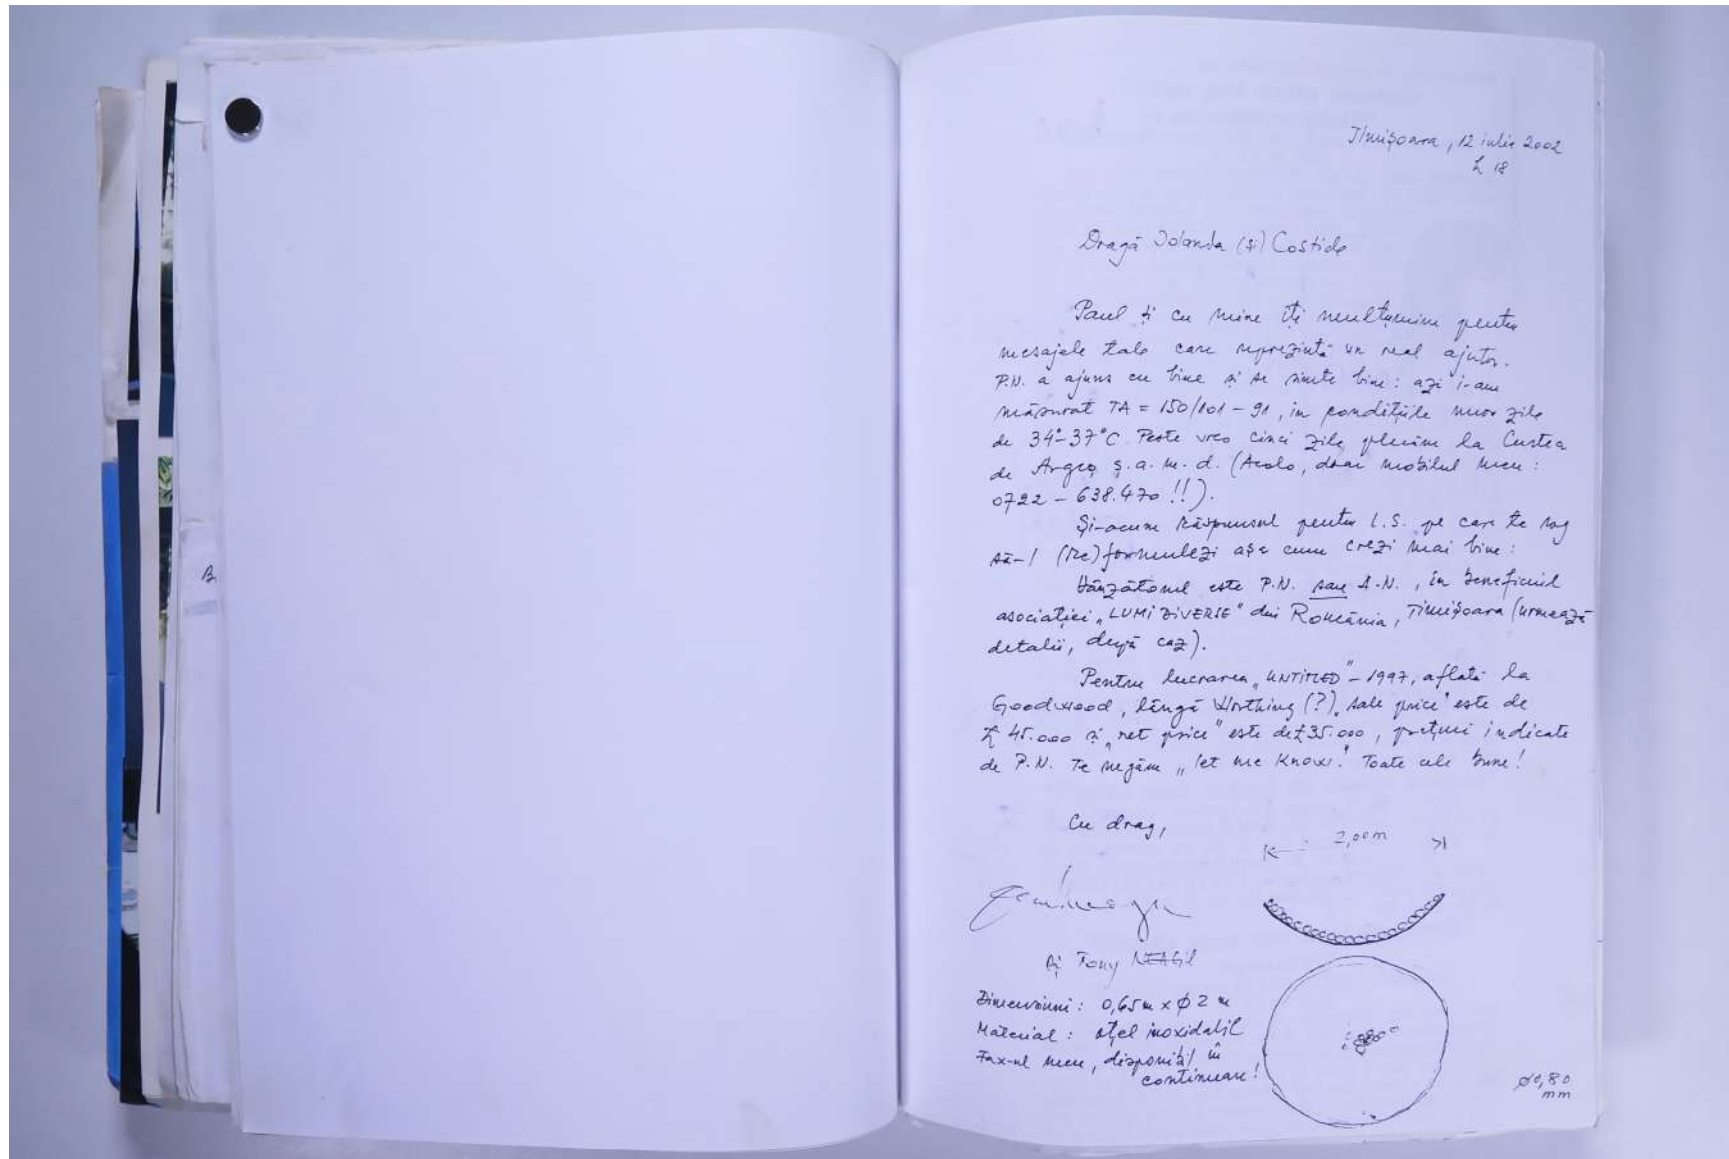 B
Timişoara, 12 iulie 2002
h 18
Dragă Iolanda (şi) Costide
Paul şi cu mine îţi mulţumim pentru
mesajele tale care reprezintă un real ajutor.
P.N. a ajuns cu bine şi se simte bine: azi i-am
măsurat TA = 150/101 - 91, in condiţiile unor zile
de 34°-37°C. Peste vreo cinci zile plecăm la Curtea
de Argeş ş.a.m.d. (Acolo, doar mobilul meu:
0722 - 638.470!!).
Şi-acum răspunsul pentru L.S. pe care te rog
să-l (re)formulezi aşa cum crezi mai bine:
Vânzătorul este P.N. sau A.N., în beneficiul
asociaţiei „LUMI DIVERSE" din România, Timişoara (urmează
detalii, după caz).
Pentru lucrarea „UNTITLED" - 1997, aflată la
Goodwood, lângă Worthing (?), „sale price" este de
£ 45.000 şi „net price" este de £35.000, preţuri indicate
de P.N. Te rugăm „let me know." Toate cele bune!
Cu drag,
şi Tony NEAGU
2,00m
Dimensiuni: 0,65 m x ϕ 2 m
Material: oţel inoxidabil
Fax-ul meu, disponibil în
continuare!
ϕ 0,80
mm